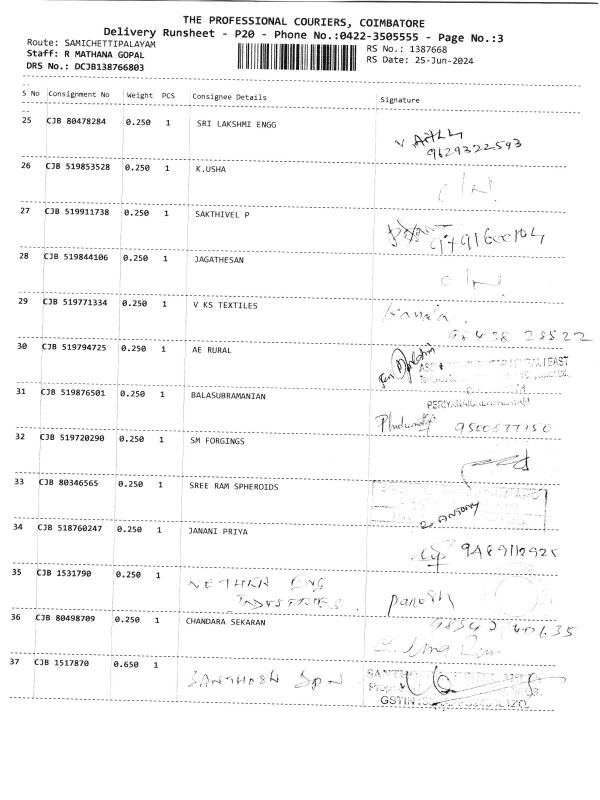 THE PROFESSIONAL COURIERS, COIMBATORE
Delivery Runsheet - P20 - Phone No.:0422-3505555 - Page No.:3
Route: SAMICHETTIPALAYAM
RS No.: 1387668
Staff: R MATHANA GOPAL
RS Date: 25-Jun-2024
DRS No.: DCJB138766803
S No Consignment No Weight PCS Consignee Details Signature
25 CJB 80478284 0.250 1 SRI LAKSHMI ENGG
9629322593
26 CJB 519853528 0.250 1 K.USHA
27 CJB 519911738 0.250 1 SAKTHIVEL P
28 CJB 519844106 0.250 1 JAGATHESAN
29 CJB 519771334 0.250 1 V KS TEXTILES
98438 28522
30 CJB 519794725 0.250 1 AE RURAL
31 CJB 519876501 0.250 1 BALASUBRAMANIAN
9500877150
32 CJB 519720290 0.250 1 SM FORGINGS
33 CJB 80346565 0.250 1 SREE RAM SPHEROIDS
ANTONY
34 CJB 518760247 0.250 1 JANANI PRIYA
9489112925
35 CJB 1531790 0.250 1
36 CJB 80498709 0.250 1 CHANDARA SEKARAN
37 CJB 1517870 0.650 1 SANTHOSH SPN